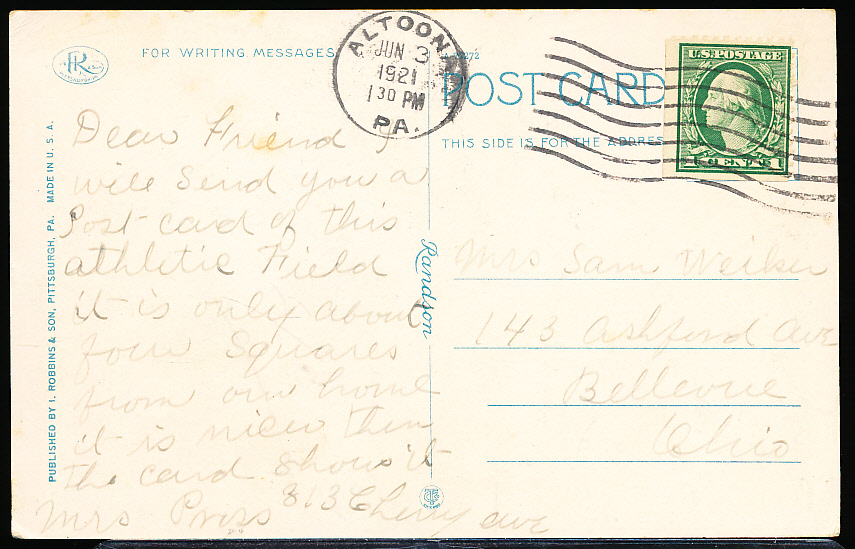 FOR WRITING MESSAGES
ALTOONA
JUN 3
1921
1 30 PM
PA.
POST CARD
THIS SIDE IS FOR THE ADDRES
U.S. POSTAGE
1 CENT 1
R
PITTSBURGH, PA.
PUBLISHED BY I. ROBBINS & SON, PITTSBURGH, PA. MADE IN U.S.A.
Dear Friend I
will send you a
Post card of this
athletic Field
it is only about
four Squares
from our home
it is nicer then
the card shows it
Mrs 813 Cherry ave
Randson
Mrs Sam Weiker
143 Ashford Ave
Bellevue
Ohio